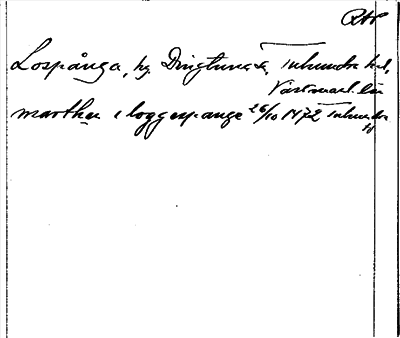 RAP
Lospånga, by, Dingtuna sn, Tuhundra hd,
Västmanl. län
marthen i loggespange 26/10 1472 Tuhundra